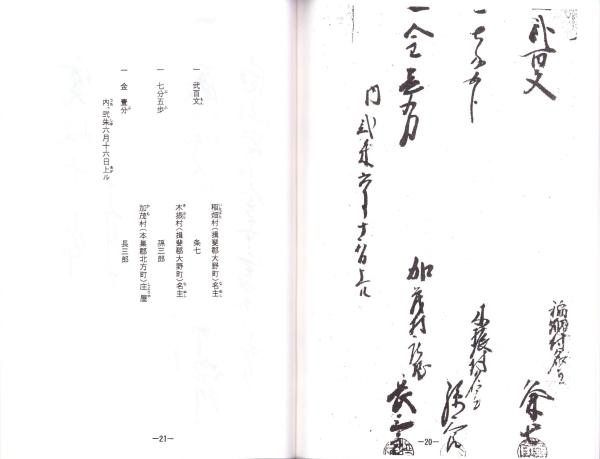 弐百文
稲畑村名主
条七
一七分五歩
木振村名主
孫三郎
一金壹分
加茂村庄屋
長三郎
内弐朱六月十六日上ル
—20—
一 弐百文
稲畑村(揖斐郡大野町)名主
条七
一 七分五歩
木振村(揖斐郡大野町)名主
孫三郎
一 金 壹分
加茂村(本巣郡北方町)庄屋
長三郎
内、弐朱六月十六日上ル
—21—